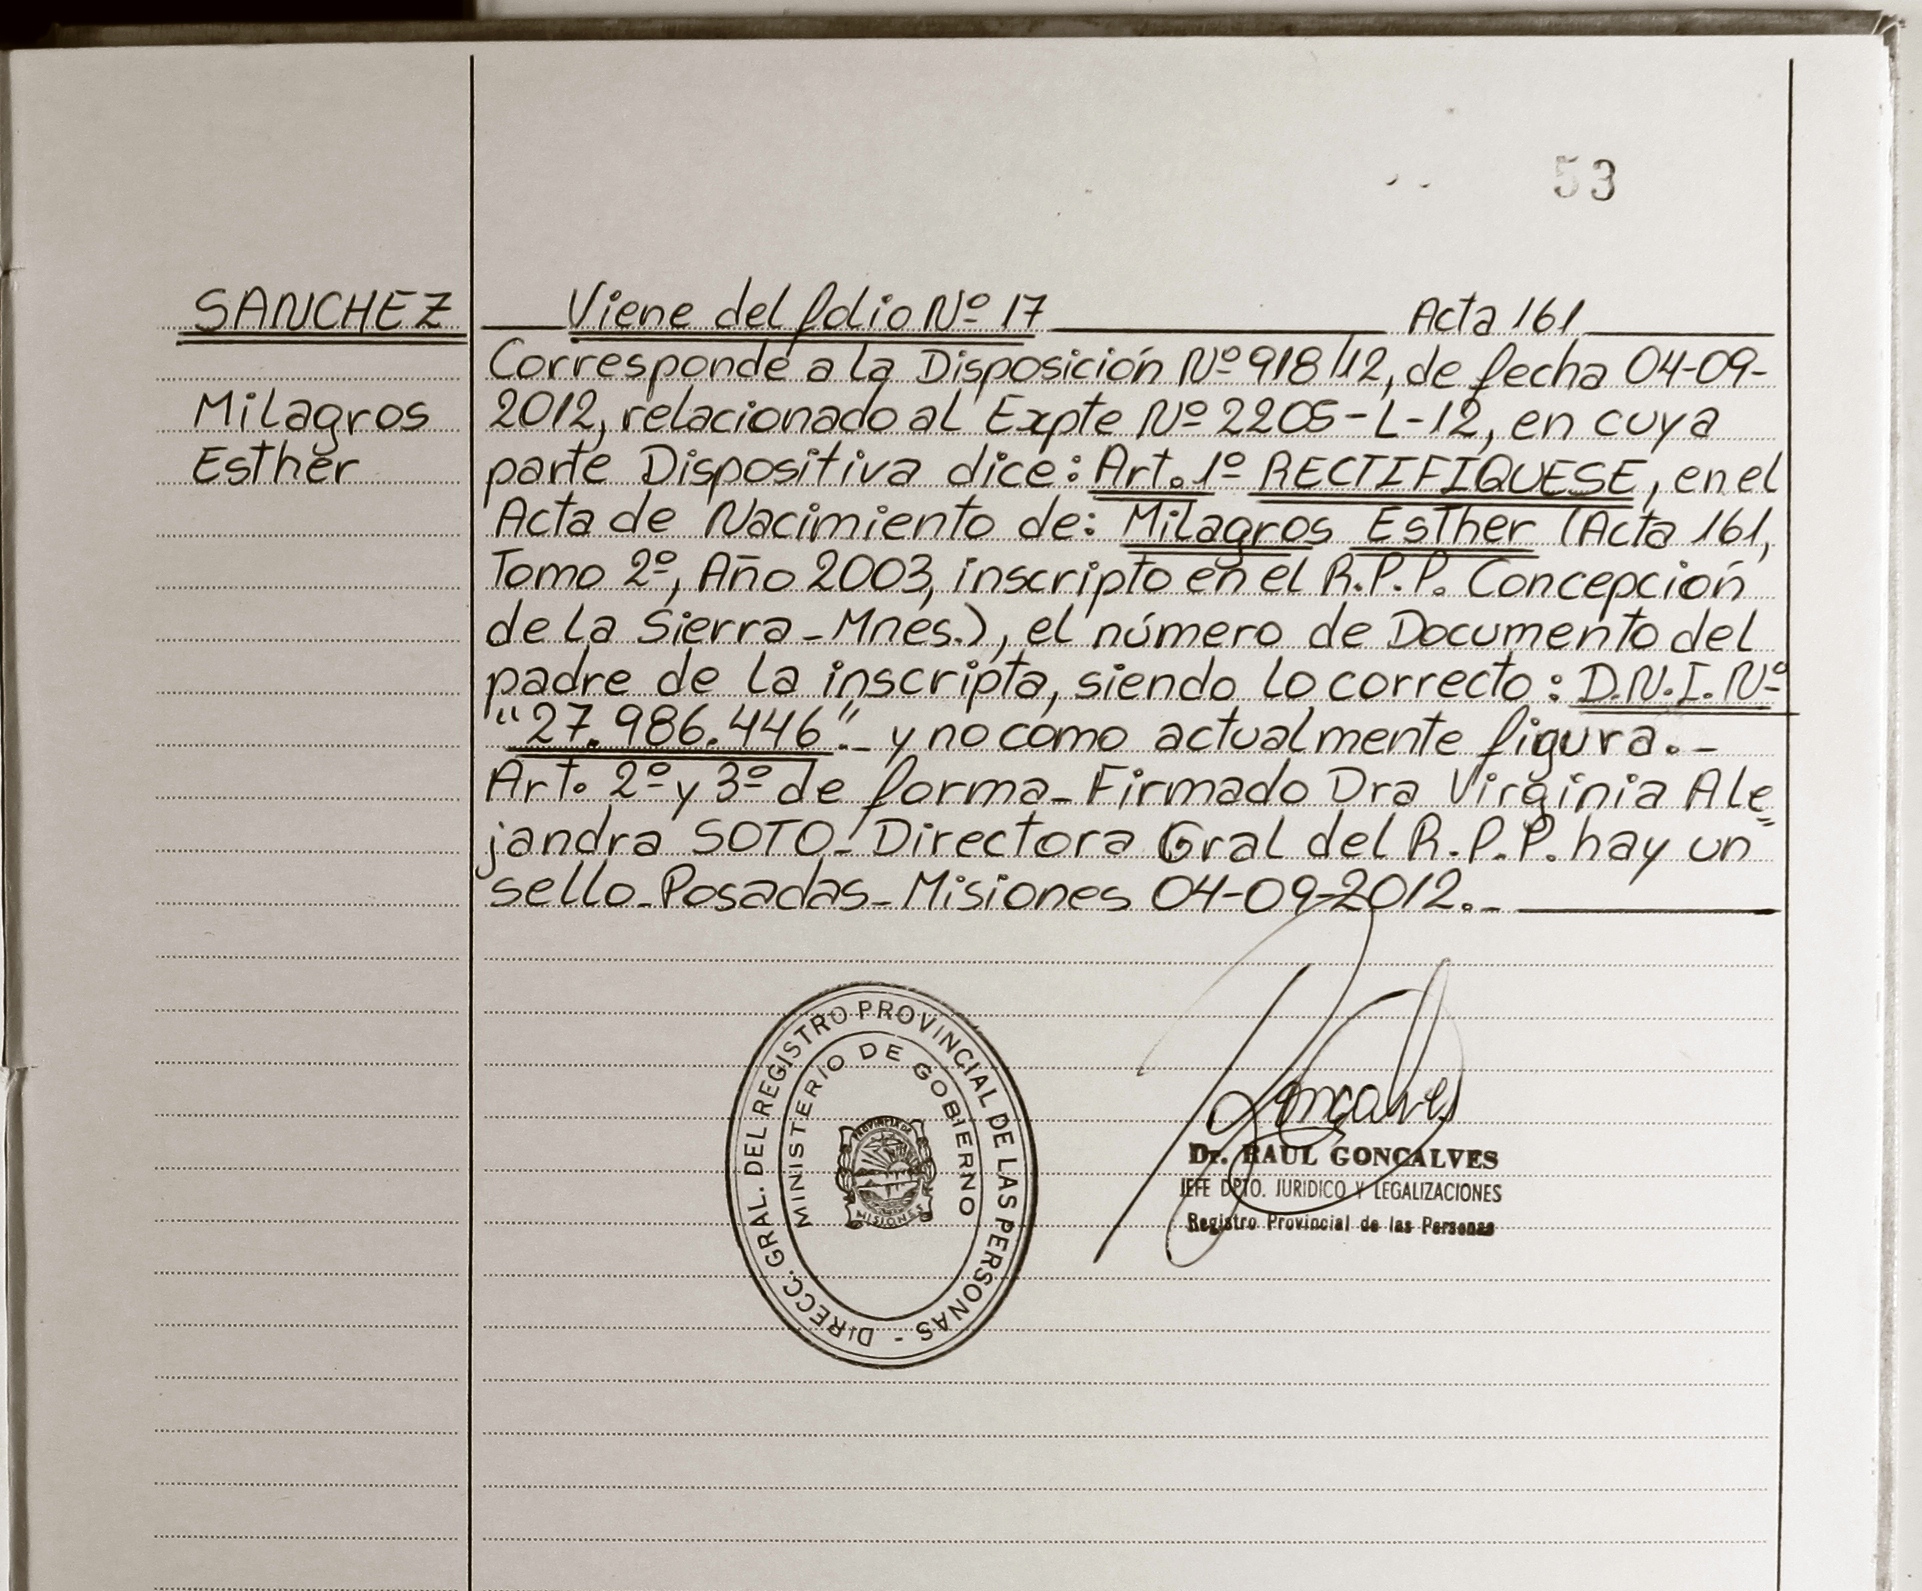 53
SANCHEZ
Milagros
Esther
Viene del folio Nº 17 Acta 161
Corresponde a la Disposición Nº 918/12, de fecha 04-09-
2012, relacionado al Expte Nº 2205-L-12, en cuya
parte Dispositiva dice: Art. 1º RECTIFIQUESE, en el
Acta de Nacimiento de: Milagros Esther (Acta 161,
Tomo 2º, Año 2003, inscripto en el R.P.P. Concepción
de la Sierra - Mnes.), el número de Documento del
padre de la inscripta, siendo lo correcto: D.N.I. Nº
"27.986.446".- y no como actualmente figura.-
Art. 2º y 3º de forma - Firmado Dra Virginia Ale=
jandra SOTO - Directora Gral del R.P.P. hay un
sello - Posadas - Misiones 04-09-2012.-
DIRECC. GRAL. DEL REGISTRO PROVINCIAL DE LAS PERSONAS -
MINISTERIO DE GOBIERNO
PROVINCIA DE
MISIONES
Goncalves
Dr. RAUL GONCALVES
JEFE DPTO. JURIDICO Y LEGALIZACIONES
Registro Provincial de las Personas